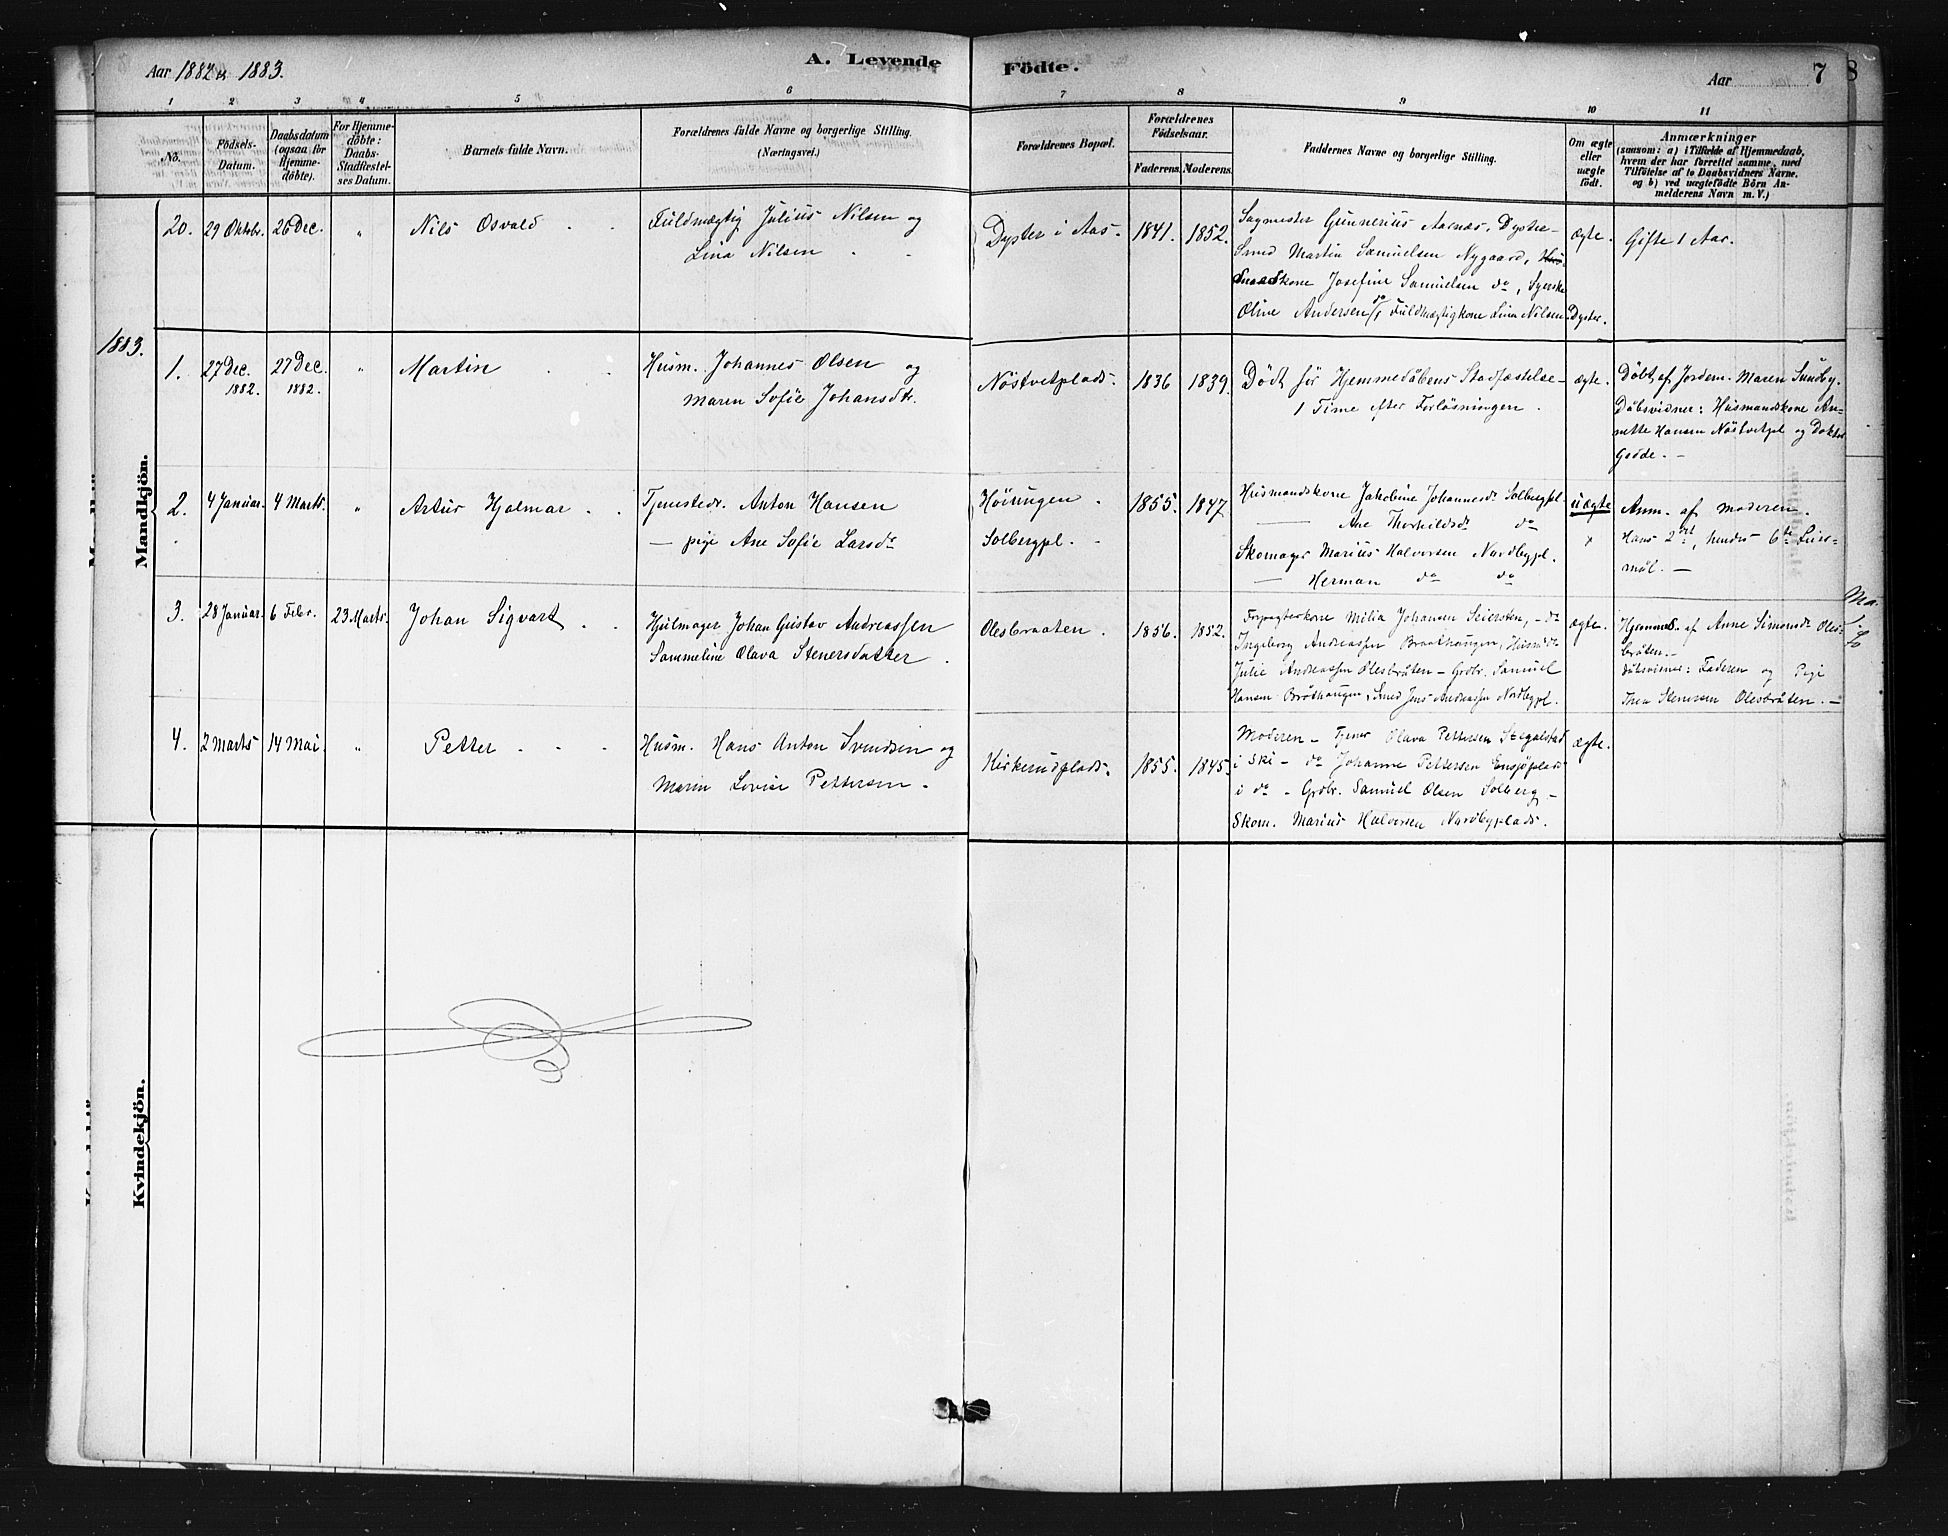 Aar 1882 & 1883.
A. Levende Födte.
Aar
7
8
1 2 3 4 5 6 7 8 9 10 11
No.
Födsels-
Datum.
Daabsdatum
(ogsaa for
Hjemme-
döbte).
For Hjemme-
döbte:
Daabs-
Stadfæstel-
ses Datum.
Barnets fulde Navn.
Forældrenes fulde Navne og borgerlige Stilling.
(Næringsvei.)
Forældrenes Bopæl.
Forældrenes
Födselsaar.
Faderens. Moderens.
Faddernes Navne og borgerlige Stilling.
Om ægte
eller
uægte
født.
Anmærkninger
(saasom: a) i Tilfælde af Hjemmedaab,
hvem der har forrettet samme, med
Tilföielse af to Daabsvidners Navne,
og b) ved uægtefödte Börn An-
melderens Navn m. V.)
Mandkjön.
20. 29 Oktobr. 26 Dec. " Nils Osvald
Fuldmægtig Julius Nilsen og
Lina Nilsen
Dyster i Aas. 1841. 1852.
Sagmester Gunnerius Aarnæs, Dyster-
Smed Martin Samuelsen Nygaard,
Smedkone Josefine Samuelsen do, Syerske
Oline Andersen do, Fuldmægtigkone Lina Nilsen Dyster.
ægte.
Gifte 1 Aar.
1883.
1. 27 Dec. 1882. 27 Dec. 1882. " Martin
Husm. Johannes Olsen og
Maren Sofie Johansdtr.
Nöstvetplads. 1836 1839.
Död för Hjemmedåbens Stadfæstelse-
1 Time efter Forlösningen.
ægte.
Döbt af Jordem. Maren Sundby.
Dåbsvidner: Husmandskone An-
nette Hansen Nöstvetpl og Doktor
Gedde. -
2. 4 Januar. 4 Marts. " Artur Hjalmar
Tjenestedr. Anton Hansen
— pige Ane Sofie Larsdr
Höiungen
Solbergpl.
1855. 1847
Husmandskone Jakobine Johannesdr Solbergpl
— Ane Thorkildsdr do
Skomager Marius Halvorsen Nordbypl.
— Herman do do
uægte
x
Anm. af Moderen.
Hans 2det, hendes 6te Leier-
mål. —
3. 28 Januar. 6 Febr. 23 Marts. Johan Sigvart
Hjulmager Johan Gustav Andreassen
Sammeline Olava Stenersdatter.
Olesbraaten. 1856. 1852.
Forpagterkone Milia Johansen Seiersten, - do
Ingeborg Andreassen Braathaugen, Husmdr
Julie Andreassen Olesbråten - Grdbr. Samuel
Hansen Bråthaugen, Smed Jens Andreassen Nordbypl.
ægte.
Hjemmed. af Anne Simonsdr Oles-
bråten. -
Dåbsvidner: Faderen og Pige
Thea Stenersen Olesbråten. -
4. 2 Marts 14 Mai. " Petter
Husm. Hans Anton Svendsen og
Maren Lovise Pettersen.
Kirkerudplads. 1855. 1845.
Moderen - Tjener Olava Pettersen
i Ski - do Johanne Pettersen Ensjöplads
i do - Grdbr. Samuel Olsen Solberg -
Skom. Marius Halvorsen Nordbyplads.
ægte.
Kvindekjön.